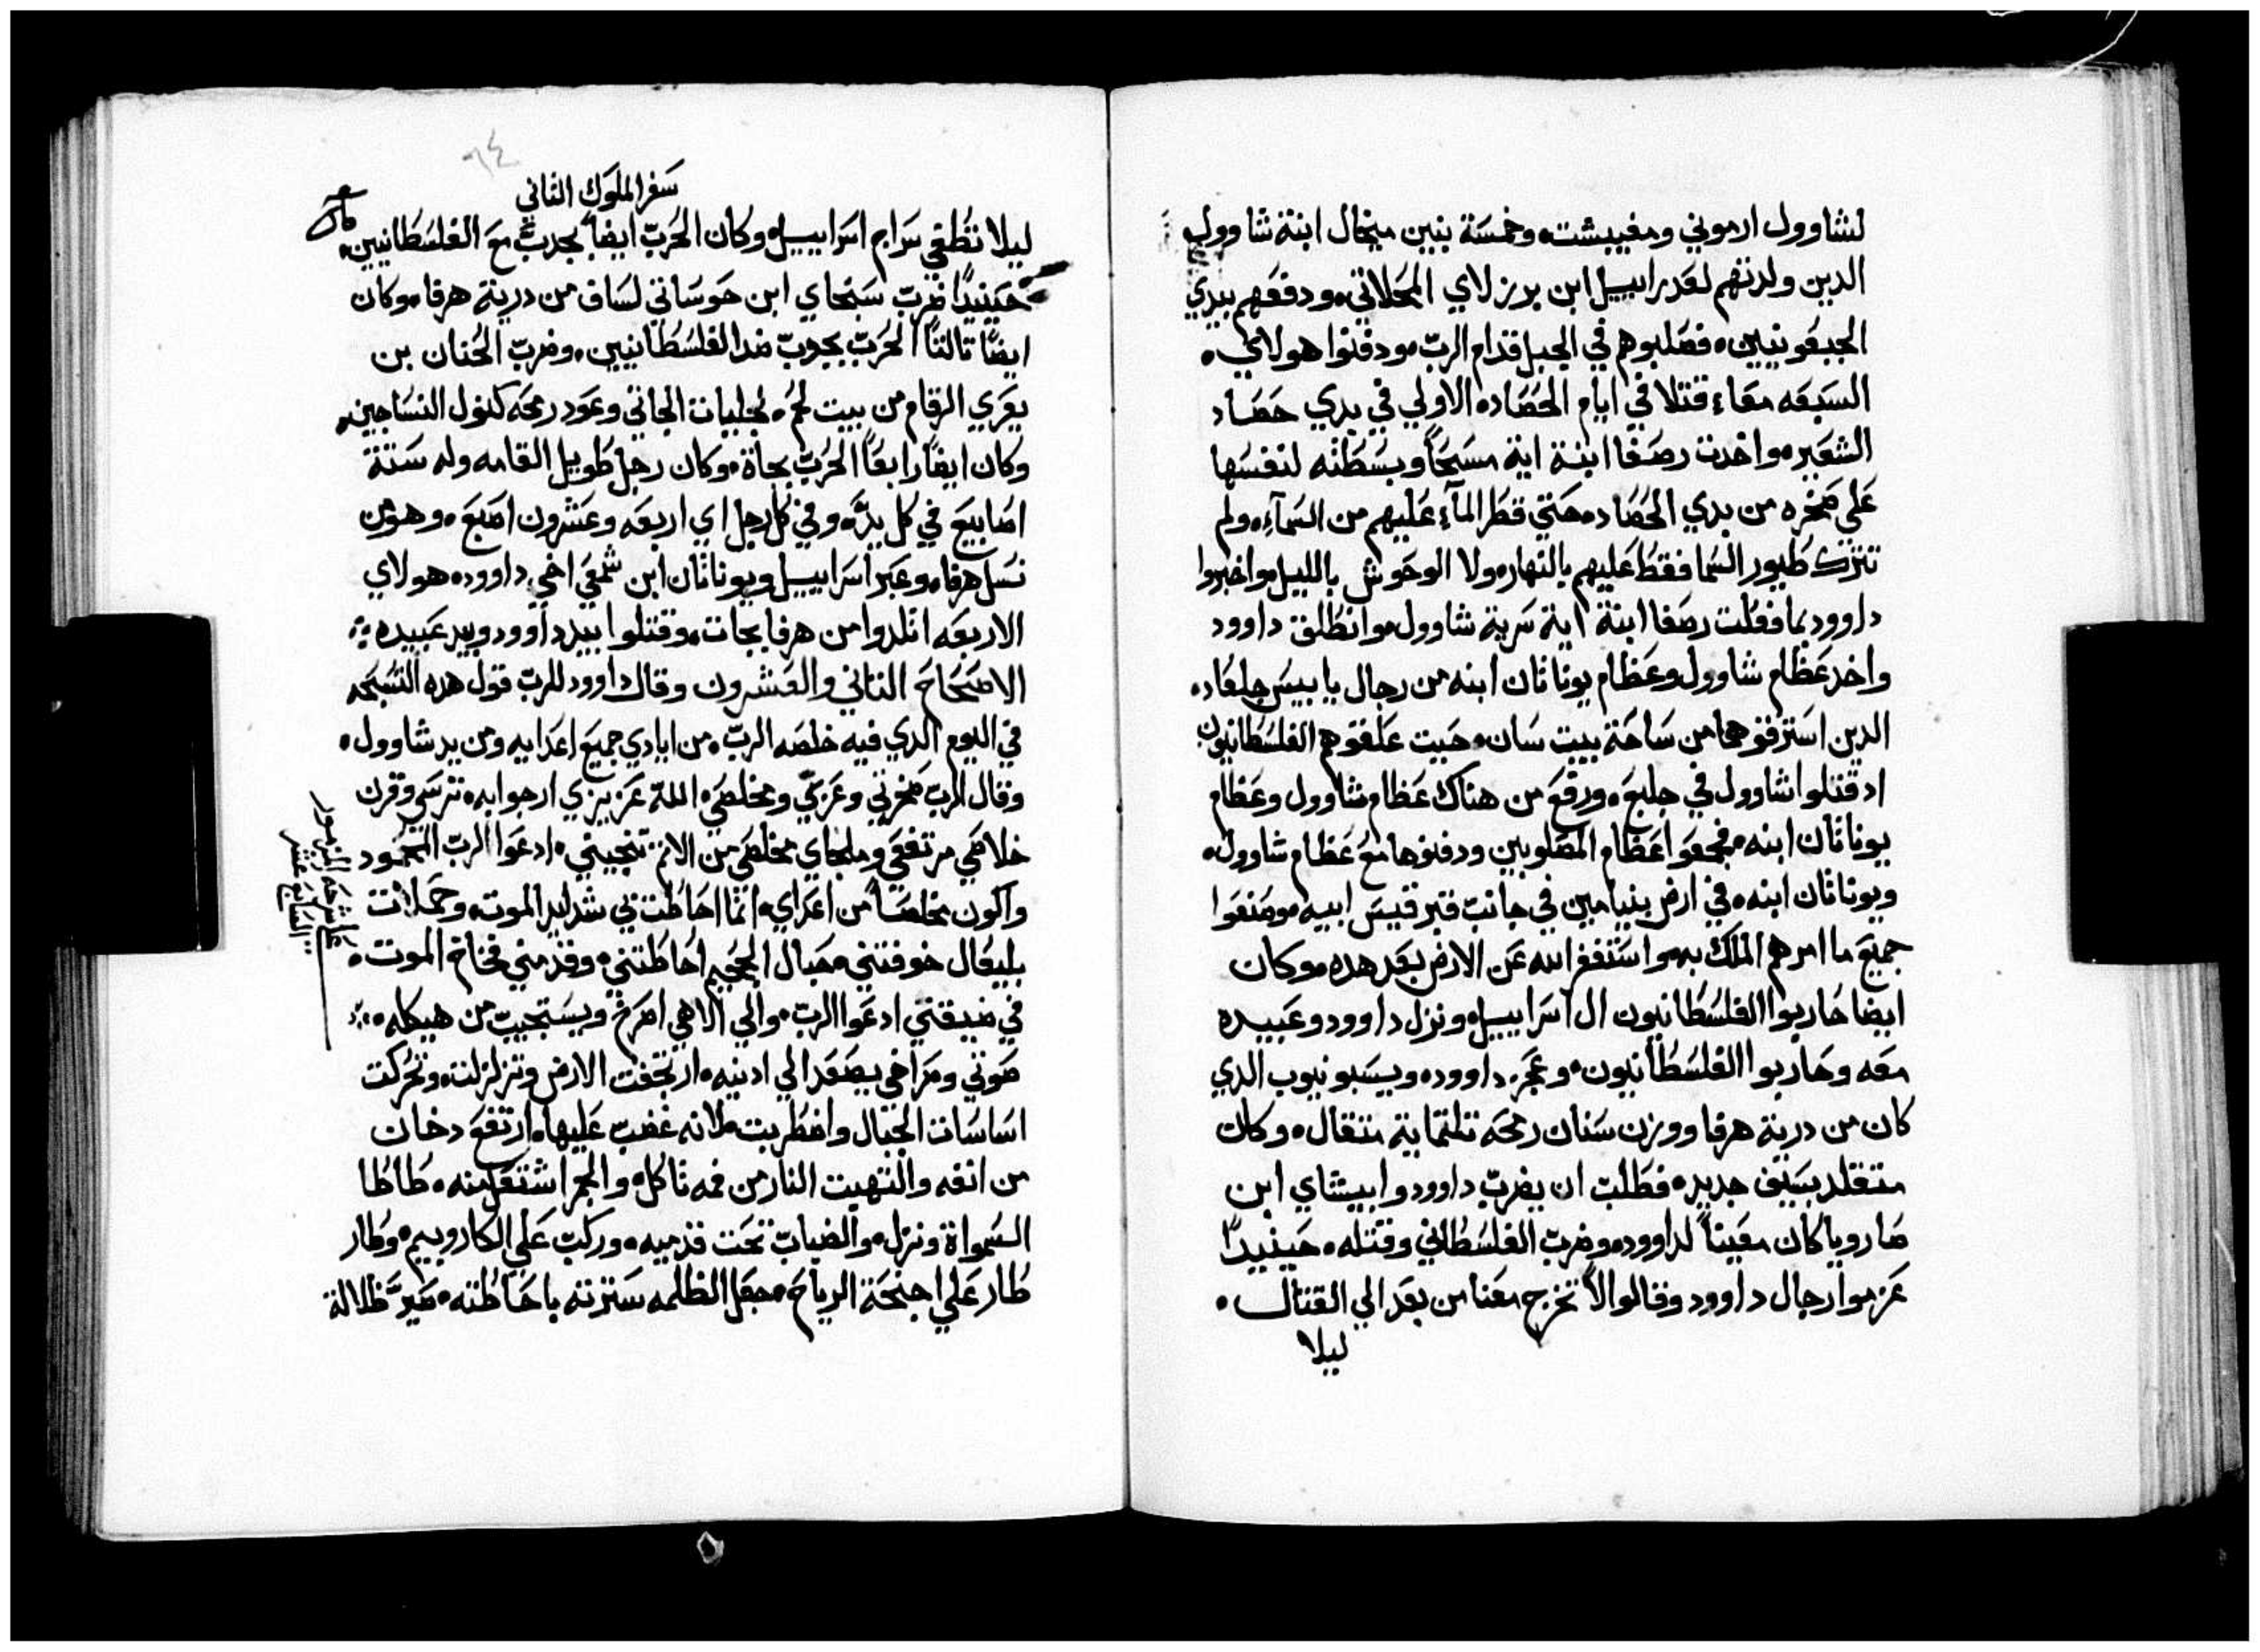 لشاوول ارموني ومغيبشت، وخمسة بنين ميخال ابنة شاوول
الدين ولدتهم لعدراييل ابن برزلاي المحلاتي، ودفعهم بيدي
الجبعونيين، فصلبوهم في الجبل قدام الرب، ودفنوا هولاي،
السبعه معاء قتلا في ايام الحصاد، الاولي في بدي حصاد
الشعير، واخدت رصفا ابنة اية مسحاً وبسطته لنفسها
علي صخره من بدي الحصاد، حتي قطر المآء عليهم من السمآء، ولم
تترك طيور السما فقط عليهم بالنهار، ولا الوحوش بالليل، واخبروا
داوود بما فعلت رصفا ابنة اية سرية شاوول، وانطلق داوود
واخد عظام شاوول وعظام يوناتان ابنه من رجال يابيس جلعاد،
الدين استرقوها من ساحة بيت سان، حيت علقوهم الفلسطانيون
اد قتلوا شاوول في جلبع، ورفع من هناك عظام شاوول وعظام
يوناتان ابنه، فجمعوا عظام المصلوبين ودفنوها مع عظام شاوول،
ويوناتان ابنه، في ارض بنيامين في جانب قبر قيس ابيه، وصنعوا
جميع ما امرهم الملك به، واستغفر الله عن الارض بعد هده، وكان
ايضا حاربوا الفلسطانيون ال اسراييل، ونزل داوود وعبيده
معه وحاربوا الفلسطانيون، وعجز داوود، ويسبونيوب الدي
كان من درية هرفا ووزن سنان رمحه تلتماية متقال، وكان
متقلد بسيف جديد، فطلب ان يضرب داوود وابيشاي ابن
صارويا كان معيناً لداوود، وضرب الفلسطاني وقتله، حينيداً
عزموا رجال داوود وقالوا لا تخرج معنا من بعد الي القتال،
ليلا
٩٤
سفر الملوك التاني
ليلا تطفي سراج اسراييل، وكان الحرب ايضاً بجدب مع الفلسطانيين،
حينيداً ضرب سبخاي ابن حوساتي لساف من درية هرفا، وكان
ايضاً تالتاً الحرب بجوب ضد الفلسطانيين، وضرب الحنان بن
يعري الرقام من بيت لحم، لجليات الجاتي وعود رمحه كنول النساجين،
وكان ايضاً رابعاً الحرب بجاة، وكان رجل طويل القامه وله ستة
اصابيع في كل يد، وفي كل رجل اي اربعه وعشرون اصبع، وهو من
نسل هرفا، وعير اسراييل ويوناتان ابن شمعي اخي داوود، هولاي
الاربعه اتلدوا من هرفا بجات، وقتلوا بيد داوود وبيد عبيده
الاصحاح التاني والعشرون وقال داوود للرب قول هده التسبحه
في اليوم الدي فيه خلصه الرب، من ايادي جميع اعدايه ومن يد شاوول،
وقال الرب صخرتي وعزتي ومخلصي، الله عزيزي ارجوا به، ترسي وقرن
خلاصي مرتفعي وملجاي مخلصي من الاتم تنجيني، ادعوا الرب المحمود
واكون مخلصاً من اعداي، انما احاطت بي شدايد الموت، وحملات
بليعال خوفتني، حبال الجحيم احاطتني، وقدمني فخاخ الموت،
في ضيقتي ادعوا الرب، والي الاهي اصرخ ويستجيب من هيكله،
صوتي وصراخي يصعد الي ادنيه، ارتجفت الارض وتزلزلت، وتحركت
اساسات الجبال واضطربت، لانه غضب عليها، ارتفع دخان
من انفه والتهبت النار من فمه تاكل، والجمر اشتعل منه، طاطا
السمواة ونزل، والضباب تحت قدميه، وركب علي الكاروبيم، وطار
طار علي اجنحة الرياح، جعل الظلمه سترته باحاطته، صير ظلالة
علي شرحه الزبور
السابع عشر